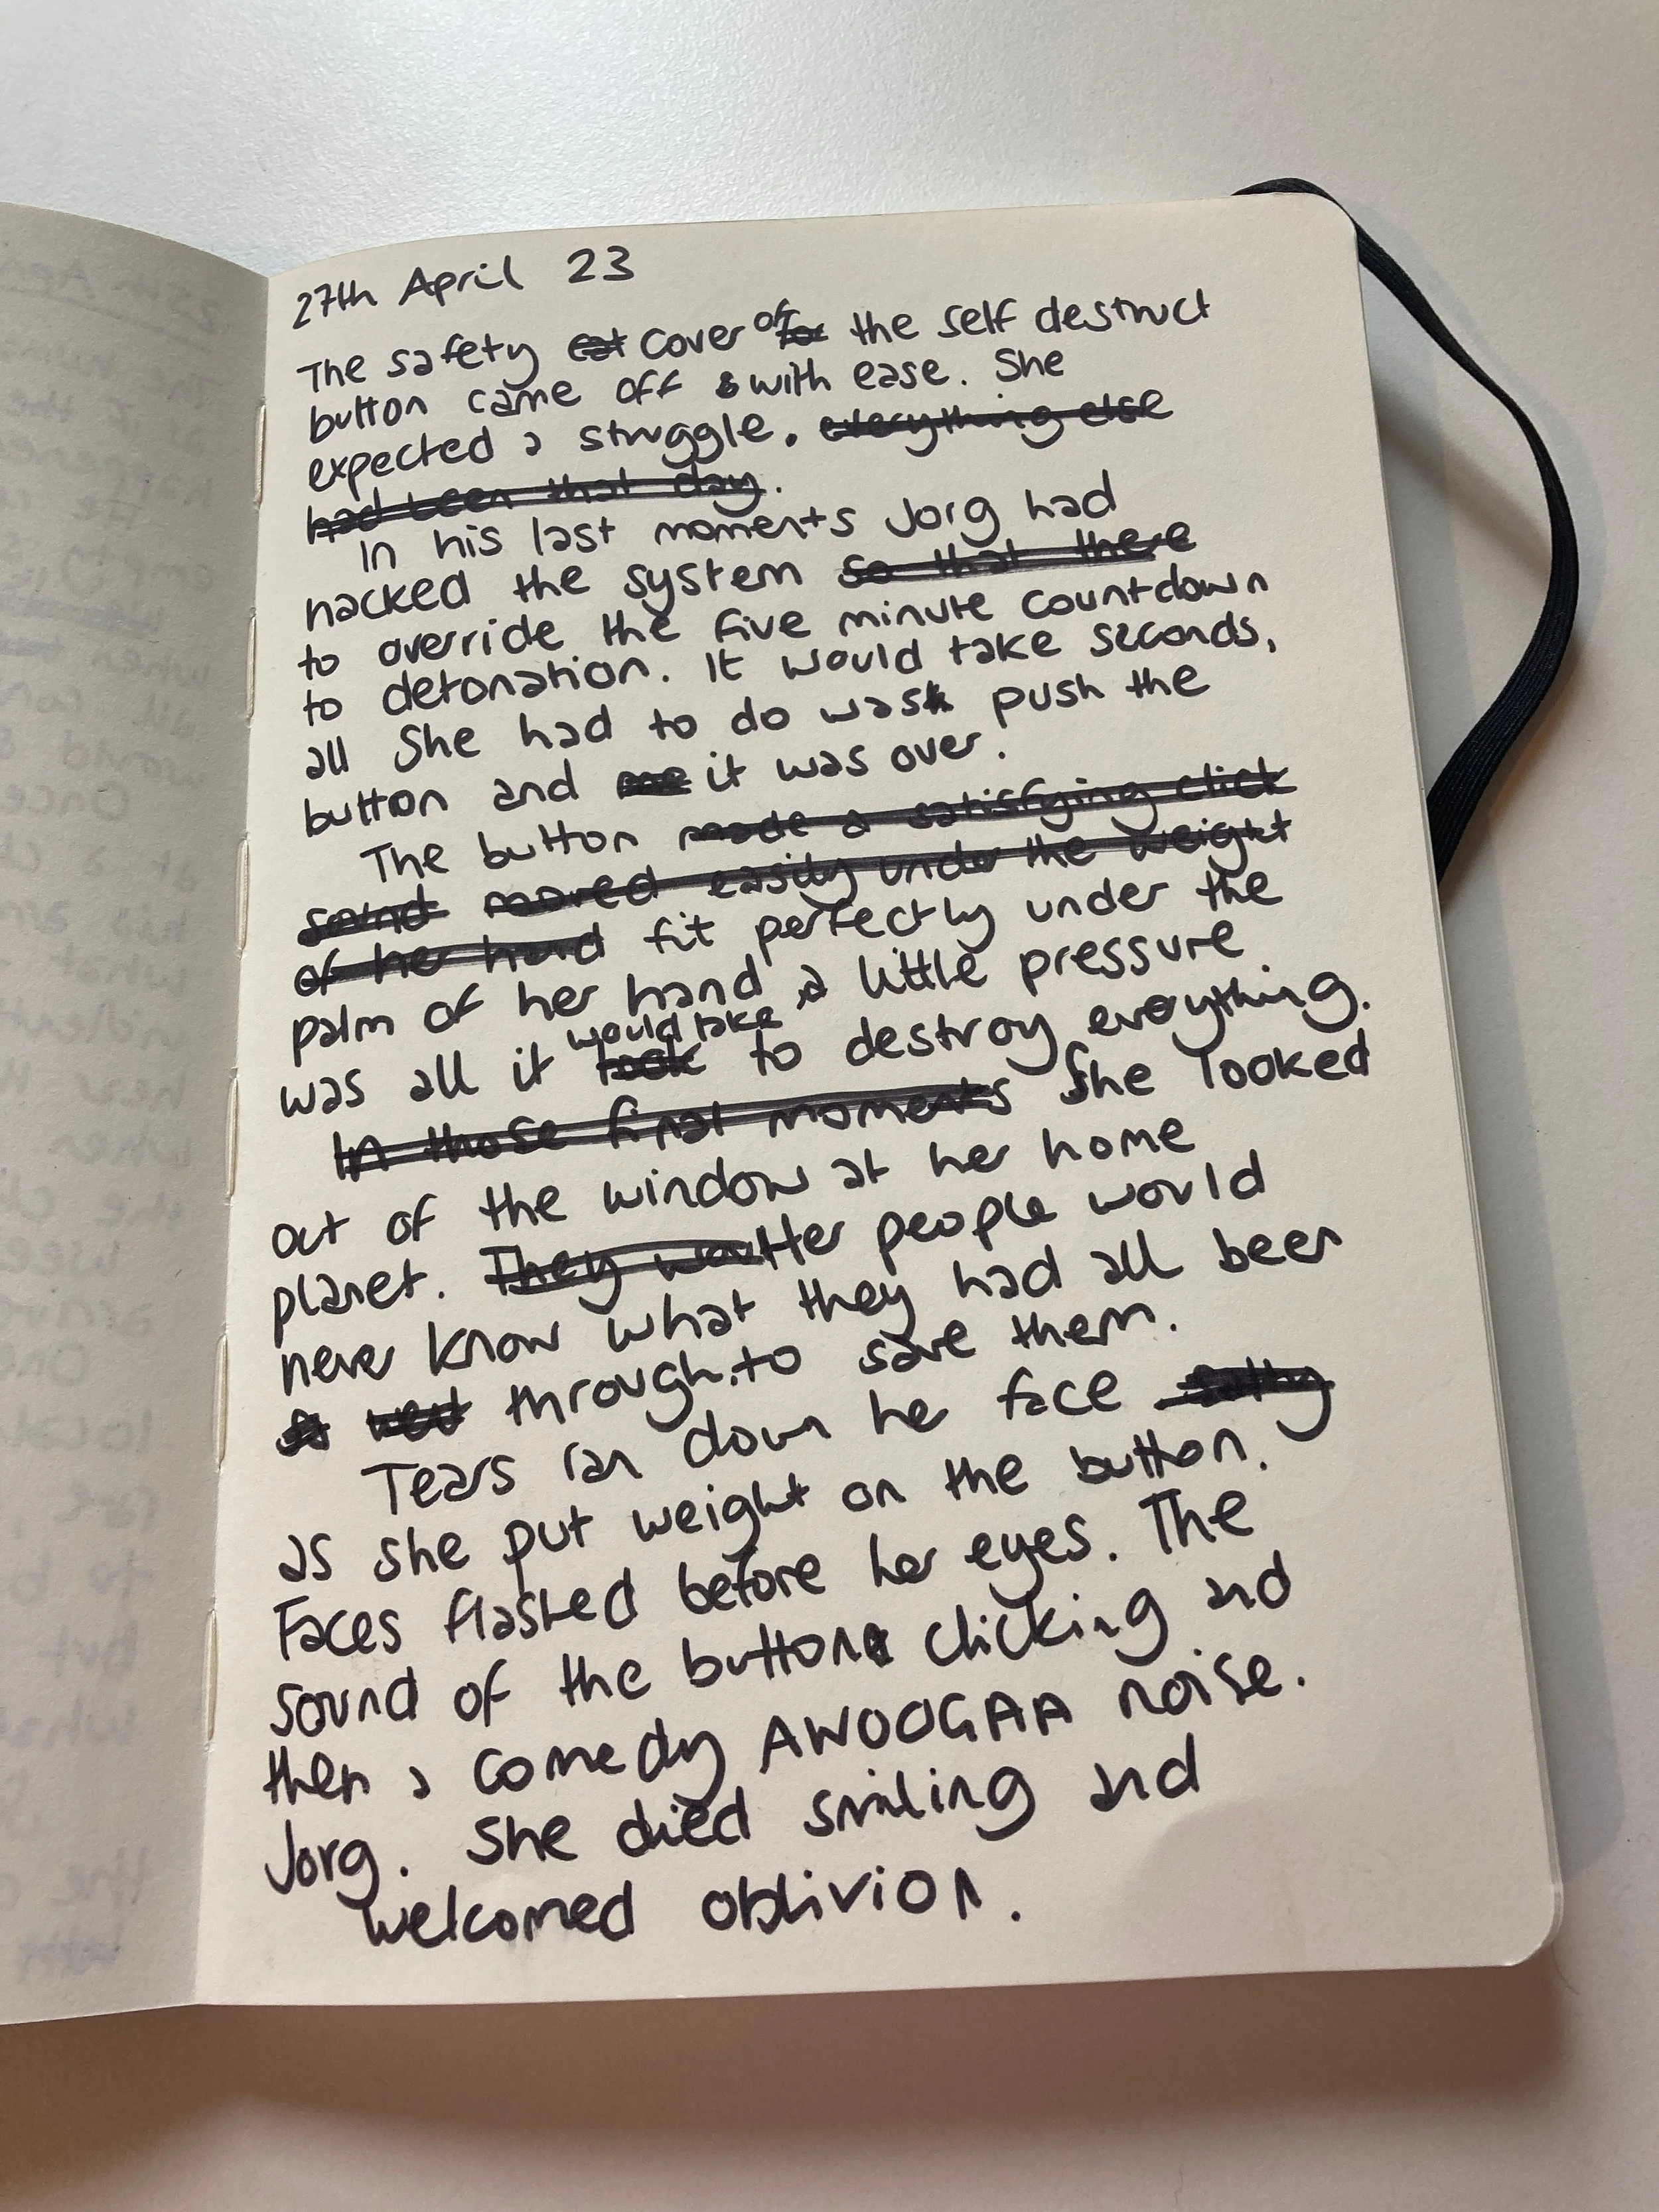 27th April 23
The safety cat cover of for the self destruct
button came off with ease. She
expected a struggle. everything else
had been that day.
In his last moments Jorg had
hacked the system so that there
to override the five minute countdown
to detonation. It would take seconds,
all she had to do was push the
button and it was over.
The button made a satisfying click
sound moved easily under the weight
of her hand fit perfectly under the
palm of her hand, a little pressure
would take
was all it took to destroy everything.
In those final moments She looked
out of the window at her home
planet. They Her people would
never know what they had all been
through to save them.
Tears ran down her face salty
as she put weight on the button.
Faces flashed before her eyes. The
sound of the button clicking and
then a comedy AWOOGAA noise.
Jorg. She died smiling and
welcomed oblivion.